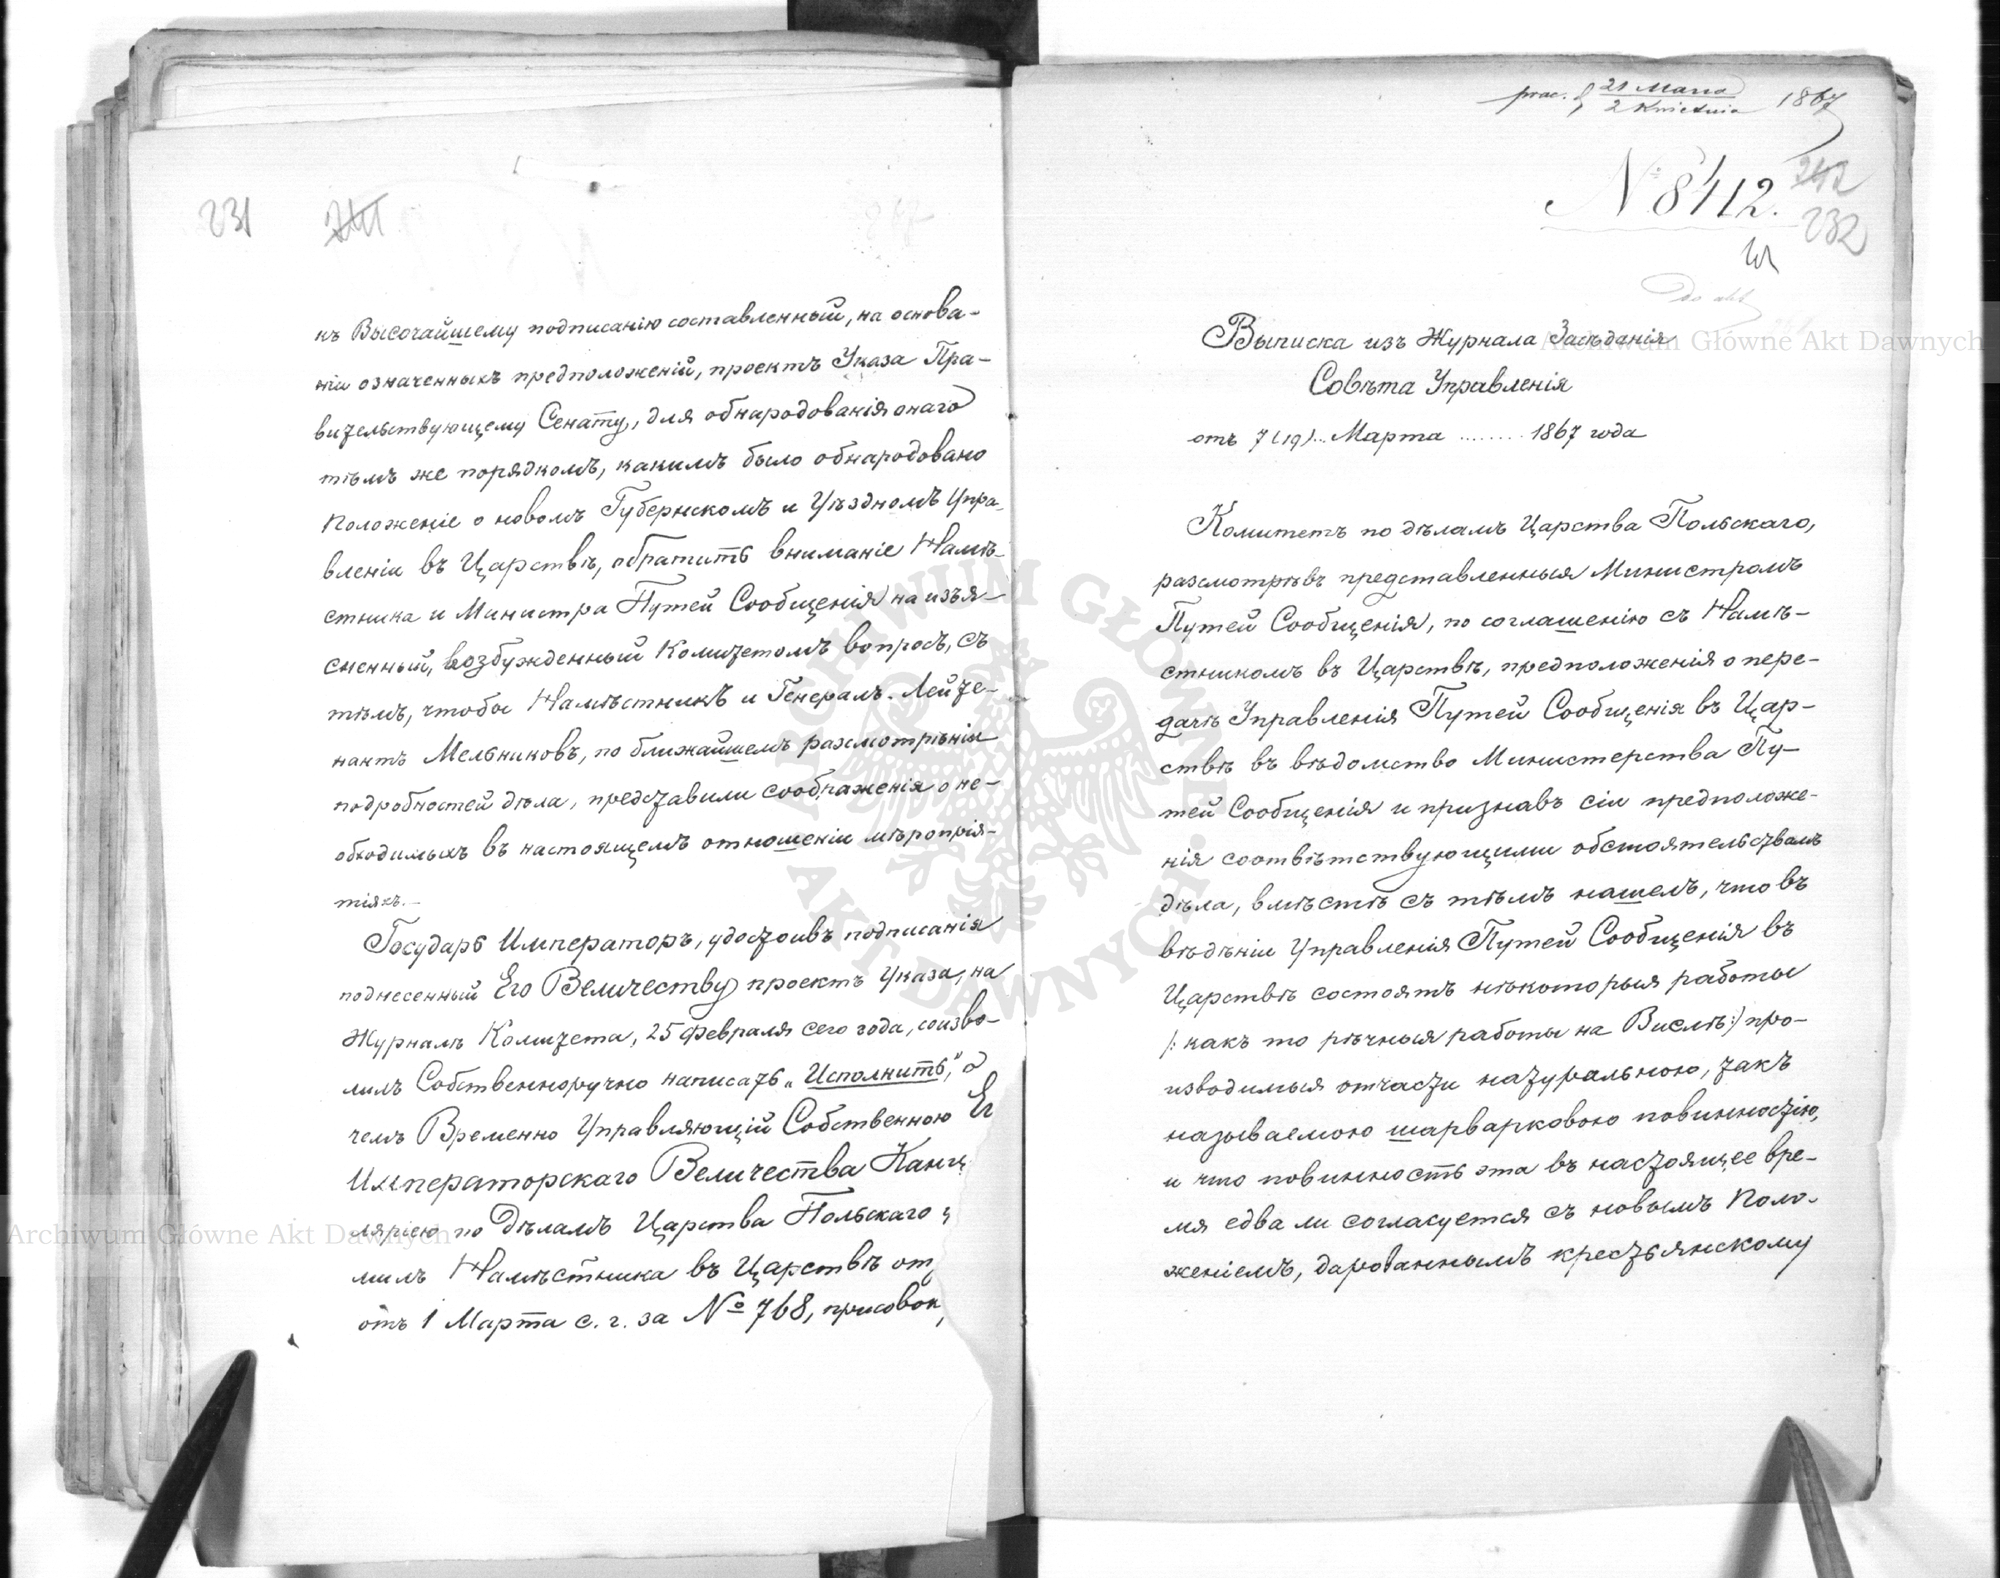 231
241
къ Высочайшему подписанію составленный, на основа-
ніи означенныхъ предположеній, проектъ Указа Пра-
вительствующему Сенату, для обнародованія онаго
тѣмъ же порядкомъ, какимъ было обнародовано
Положеніе о новомъ Губернскомъ и Уѣздномъ Упра-
вленіи въ Царствѣ, обратить вниманіе Намѣ-
стника и Министра Путей Сообщенія на изъя-
сненный, возбужденный Комитетомъ вопросъ, съ
тѣмъ, чтобы Намѣстникъ и Генералъ-Лейте-
нантъ Мельниковъ, по ближайшемъ разсмотрѣніи
подробностей дѣла, представили соображенія о не-
обходимыхъ въ настоящемъ отношеніи мѣропрія-
тіяхъ.—
Государь Императоръ, удостоивъ подписанія
поднесенный Его Величеству проектъ Указа, на
Журналѣ Комитета, 25 Февраля сего года, соизво-
лилъ Собственноручно написать „Исполнить," о
чемъ Временно Управляющій Собственною Ег
Императорскаго Величества Канц
ляріею по Дѣламъ Царства Польскаго
милъ Намѣстника въ Царствѣ от
отъ 1 Марта с. г. за № 768, присовок
prac. 21 Marca / 2 Kwietnia 1867
№ 8412.
242
232
Do akt
Выписка изъ Журнала Засѣданія
Совѣта Управленія
отъ 7 (19) .. Марта ........ 1867 года
Комитетъ по дѣламъ Царства Польскаго,
разсмотрѣвъ представленныя Министромъ
Путей Сообщенія, по соглашенію съ Намѣ-
стникомъ въ Царствѣ, предположенія о пере-
дачѣ Управленія Путей Сообщенія въ Цар-
ствѣ въ вѣдомство Министерства Пу-
тей Сообщенія и признавъ сіи предположе-
нія соотвѣтствующими обстоятельствамъ
дѣла, вмѣстѣ съ тѣмъ нашелъ, что въ
вѣдѣніи Управленія Путей Сообщенія въ
Царствѣ состоятъ нѣкоторыя работы
/: какъ то рѣчныя работы на Вислѣ :/ про-
изводимыя отчасти натуральною, такъ
называемою шарварковою повинностію,
и что повинность эта въ настоящее вре-
мя едва ли согласуется съ новымъ Поло-
женіемъ, дарованнымъ крестьянскому
Archiwum Główne Akt Dawnych
Archiwum Główne Akt Dawnych
ARCHIWUM GŁÓWNE AKT DAWNYCH